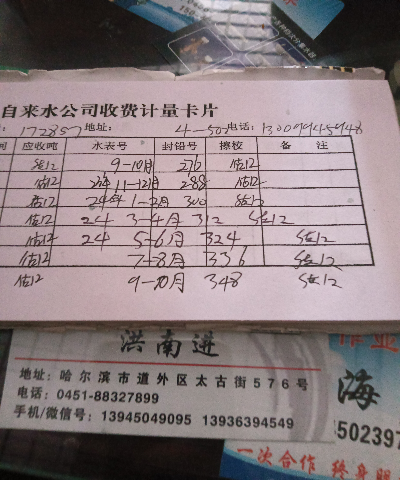 自来水公司收费计量卡片
172857 地址: 4-502 电话: 13009945948
间 应收吨 水表号 封铅号 擦校 备 注
估12 9-10月 276 估12
估12 23年11-12月 288 估12
估12 24年1-2月 300 估12
估12 24 3-4月 312 估12
估12 24 5-6月 324 估12
估12 7-8月 336 估12
估12 9-10月 348 估12
洪南进
地址:哈尔滨市道外区太古街576号
电话:0451-88327899
手机/微信号:13945049095 13936394549
作业
海
502397
一次合作 终身朋